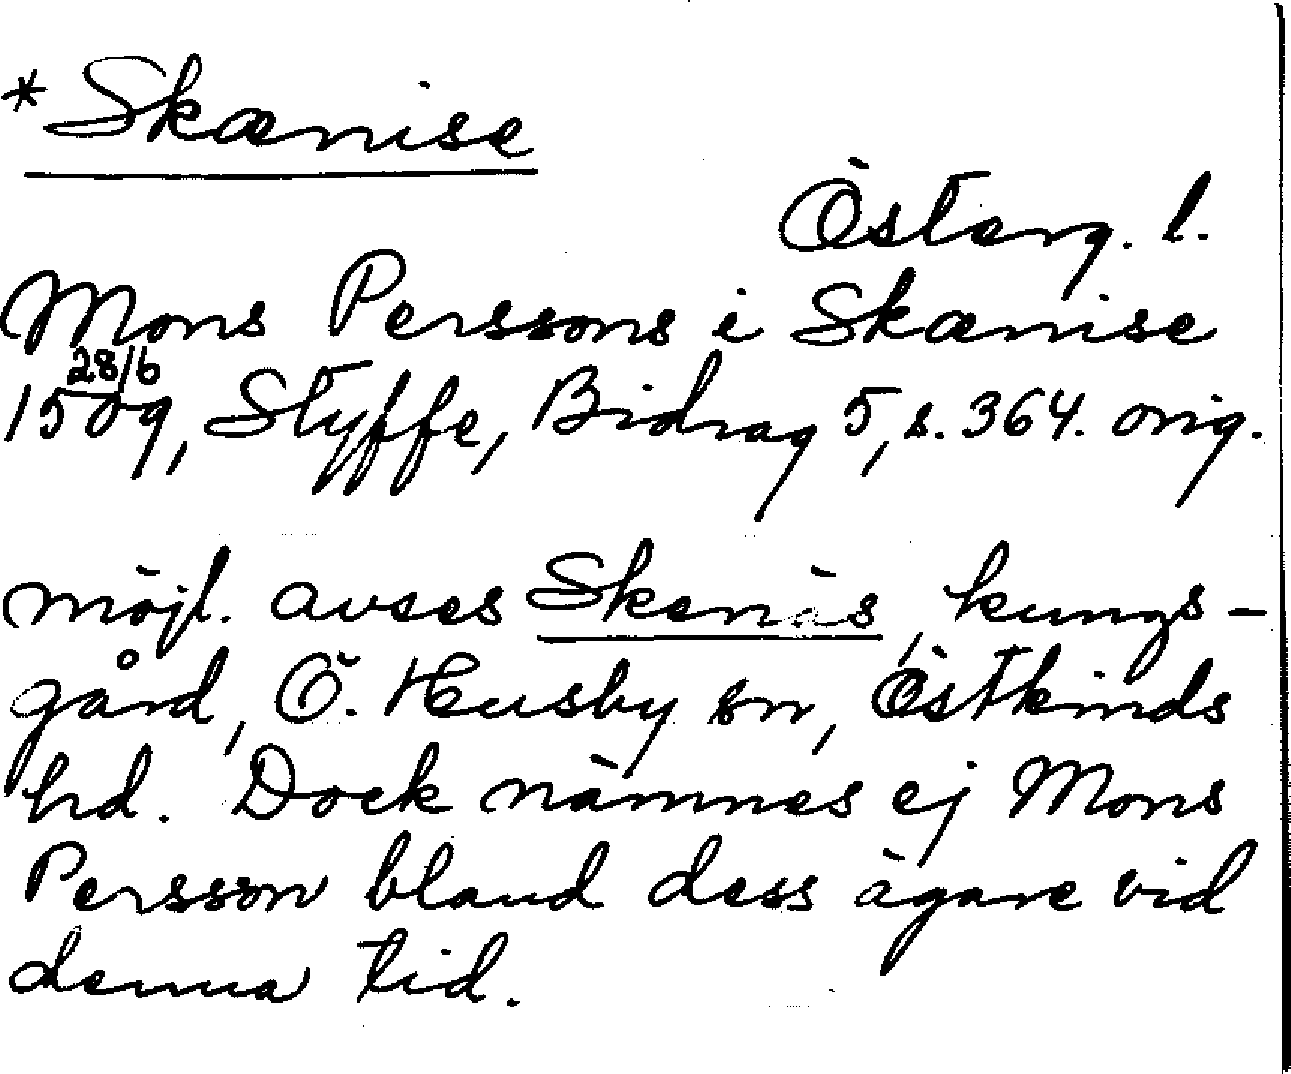 *Skænise
Österg. l.
Mons Perssons i Skænise
28/6
1509, Styffe, Bidrag 5, s. 364. orig.
möjl. avses Skenäs, kungs-
gård, Ö. Husby sn, Östkinds
hd. Dock nämnes ej Mons
Persson bland dess ägare vid
denna tid.